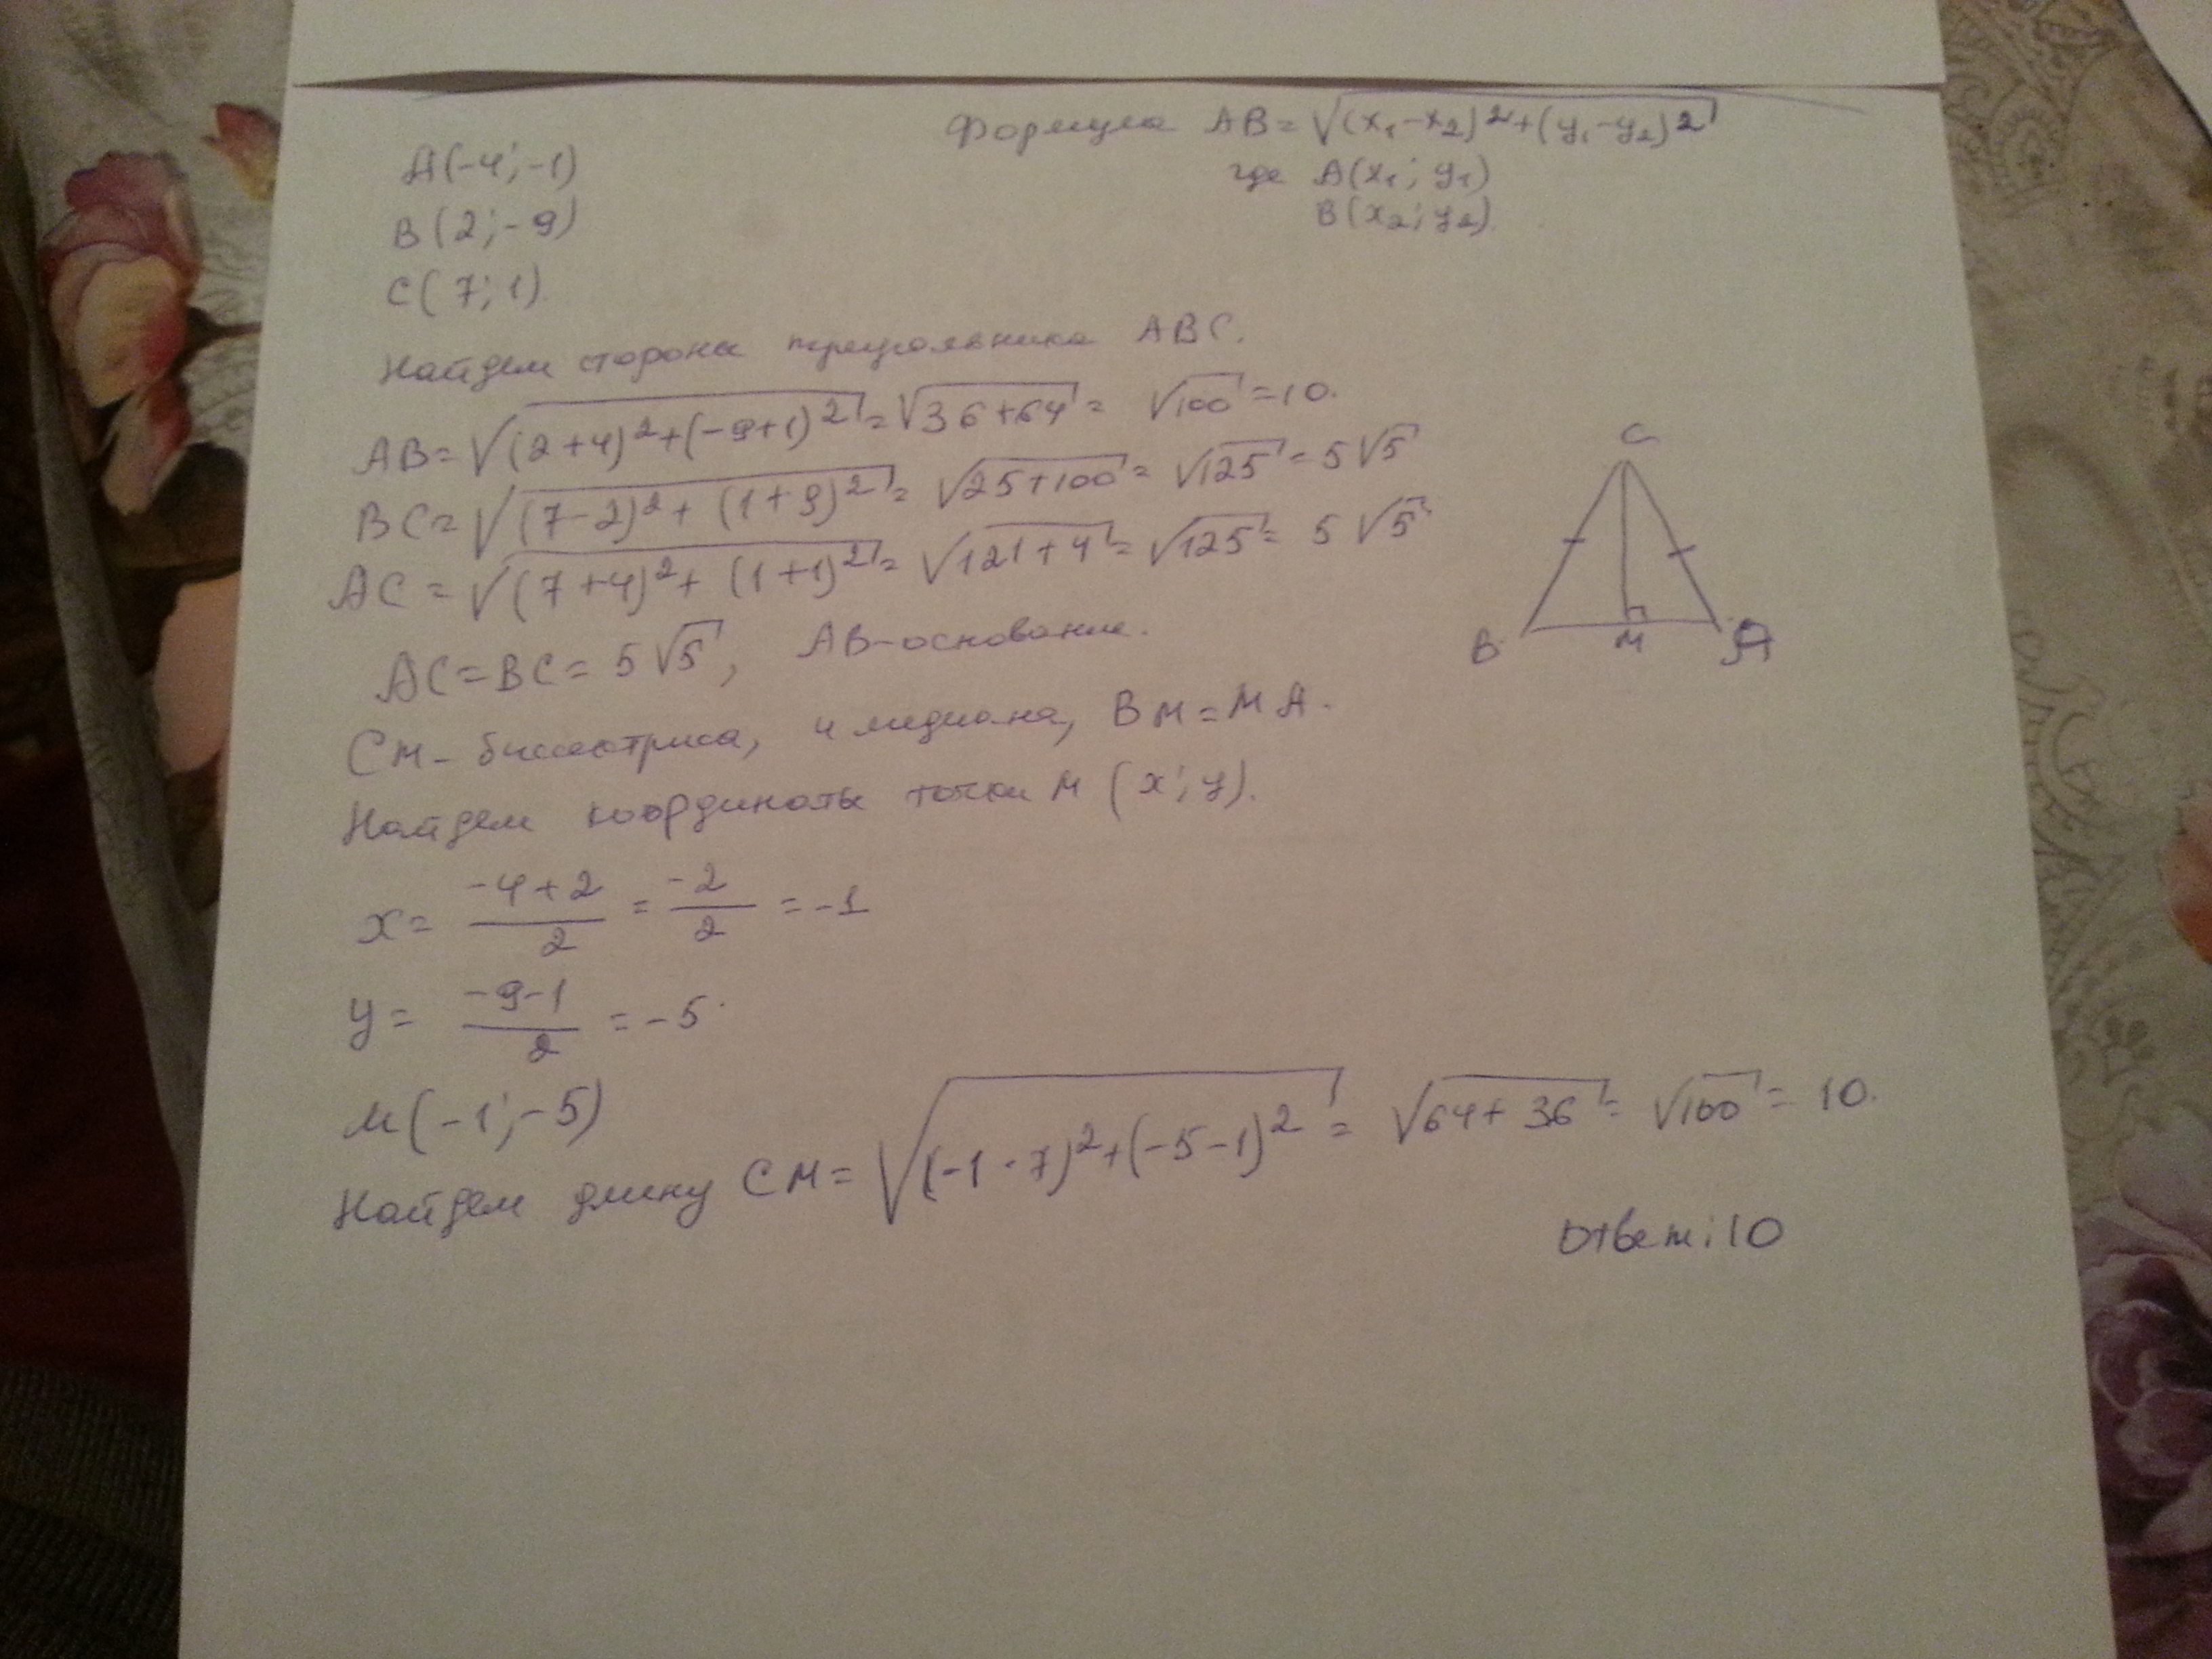 Формула AB=√(x₁-x₂)²+(y₁-y₂)²
где A(x₁; y₁)
B(x₂; y₂)
A(-4; -1)
B(2; -9)
C(7; 1)
Найдем стороны треугольника ABC.
AB=√(2+4)²+(-9+1)²=√36+64= √100=10.
BC=√(7-2)²+(1+9)²= √25+100= √125= 5√5
AC=√(7+4)²+(1+1)²= √121+4= √125= 5√5
AC=BC=5√5, AB-основание.
CM- биссектриса, и медиана, BM=MA.
Найдем координаты точки M (x; y).
x= -4+2/2 = -2/2 =-1
y= -9-1/2 =-5
M(-1; -5)
Найдем длину CM=√(-1-7)²+(-5-1)²= √64+36= √100= 10.
Ответ: 10
C
B M A